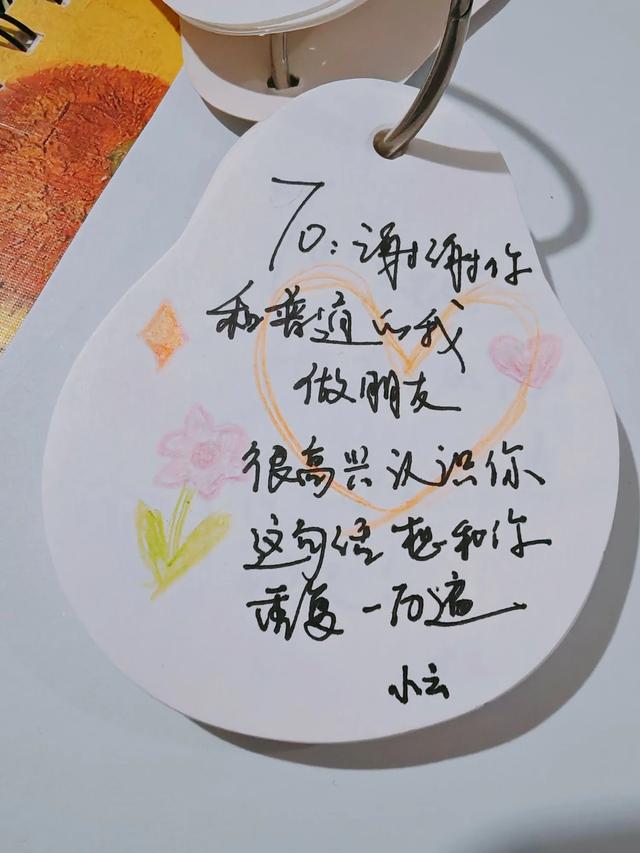 To：谢谢你
和普通的我
做朋友
很高兴认识你
这句话想和你
重复一百遍
小云